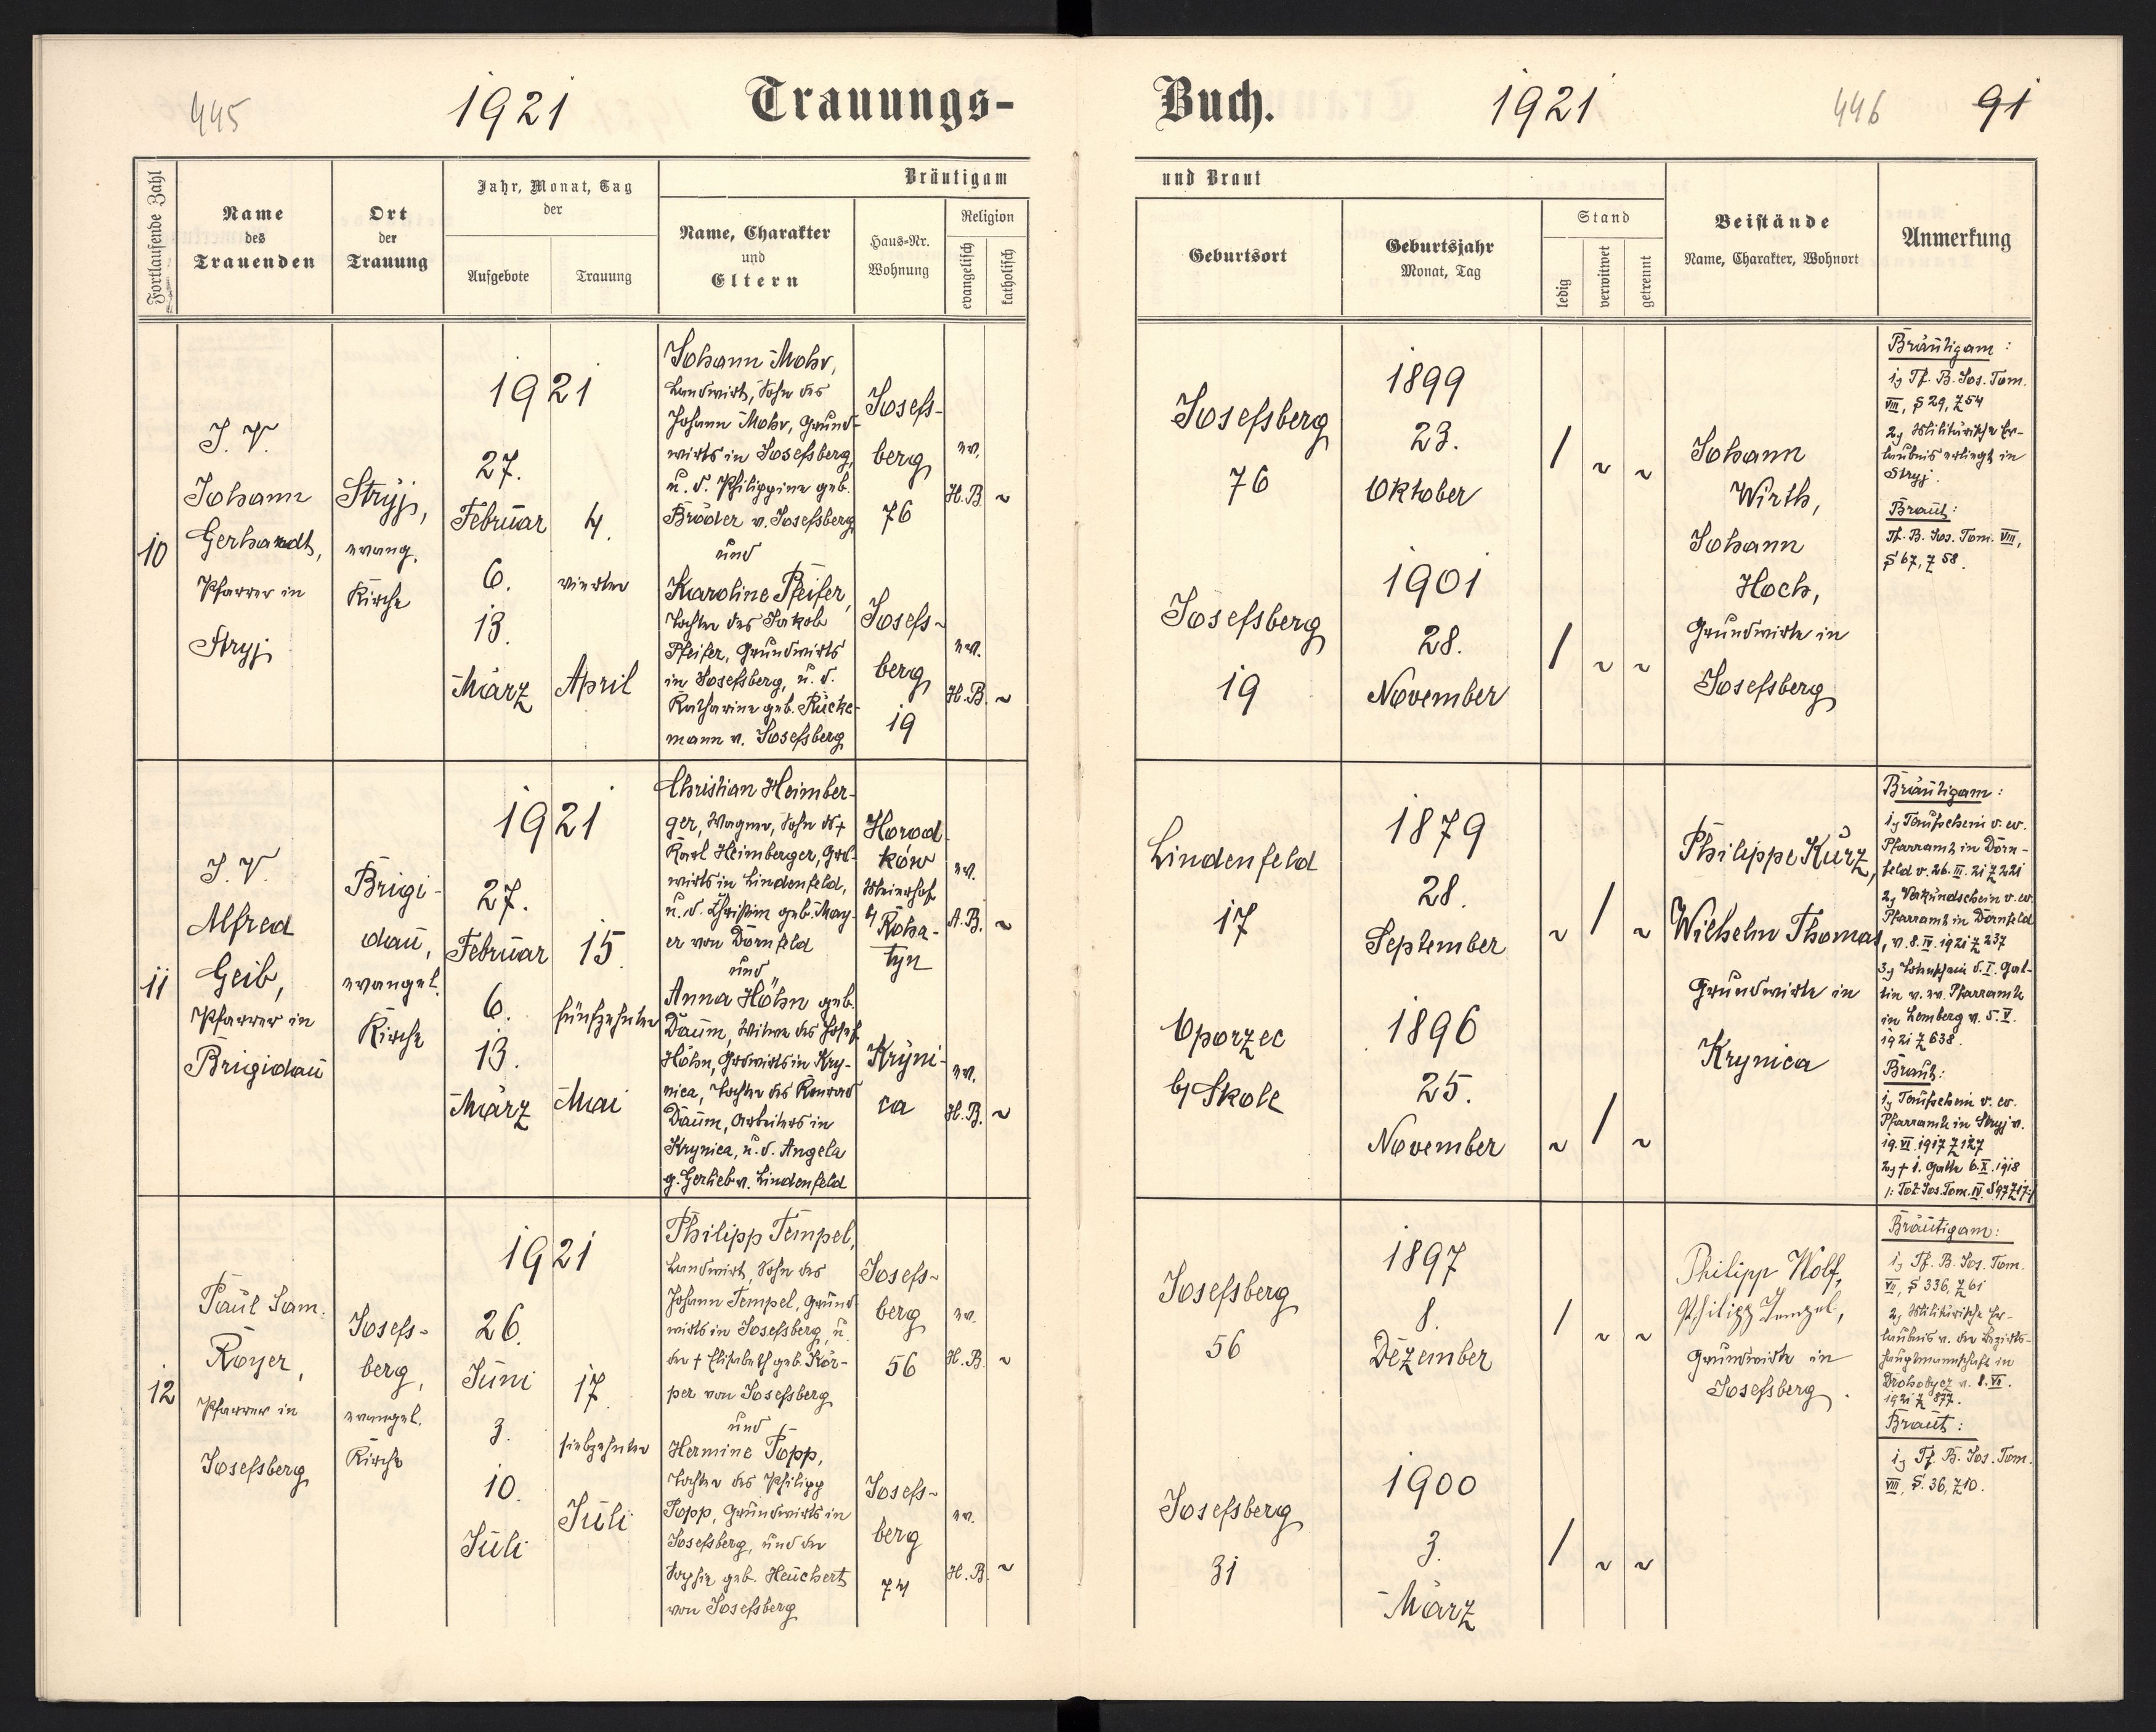 445
1921
Trauungs-
Buch.
1921
446
91
Fortlaufende Zahl
Name
des
Trauenden
Ort
der
Trauung
Jahr, Monat, Tag
der
Aufgebote
Trauung
Bräutigam
Name, Charakter
und
Eltern
Haus-Nr.
Wohnung
Religion
evangelisch
katholisch
und Braut
Geburtsort
Geburtsjahr
Monat, Tag
Stand
ledig
verwitwet
getrennt
Beistände
Name, Charakter, Wohnort
Anmerkung
10
I. V.
Johann
Gerhardt,
Pfarrer in
Stryj
Stryj,
evang.
Kirche
1921
27.
Februar
6.
13.
März
4.
vierter
April
Johann Mohr,
Landwirt, Sohn des
Johann Mohr, Grund-
wirts in Josefsberg,
u. d. Philippine geb.
Bröder v. Josefsberg
und
Karoline Pfeifer,
Tochter des Jakob
Pfeifer, Grundwirts
in Josefsberg, u. d.
Katharine geb. Rücke-
mann v. Josefsberg
Josefs-
berg
76
Josefs-
berg
19
ev.
H.B. ~
ev.
H.B. ~
Josefsberg
76
Josefsberg
19
1899
23.
Oktober
1901
28.
November
/ ~ ~
/ ~ ~
Johann
Wirth,
Johann
Hoch,
Grundwirte in
Josefsberg
Bräutigam:
1, Tf. B. Jos. Tom.
VIII, § 29, Z 54
2, Militärische Er-
laubnis erliegt in
Stryj.
Braut:
Tf. B. Jos. Tom. VIII,
§ 67, Z 58.
11
I. V.
Alfred
Geib,
Pfarrer in
Brigidau
Brigi-
dau,
evangel.
Kirche
1921
27.
Februar
6.
13.
März
15.
fünfzehnter
Mai
Christian Heimber-
ger, Wagner, Sohn d. †
Karl Heimberger, Grd-
wirts in Lindenfeld,
u. d. Christine geb. May-
er von Dornfeld
und
Anna Höhn geb.
Daum, Witwe des Josef
Höhn, Grdwirts in Kry-
nica, Tochter des Konrad
Daum, Arbeiters in
Krynica, u. d. Angela
g. Gerlieb v. Lindenfeld
Horod-
ków
Meierhof
b/ Roha-
tyn
Kryni-
ca
ev.
A.B. ~
ev.
H.B. ~
Lindenfeld
17
Oporzec
b/ Skole
1879
28.
September
1896
25.
November
~ / ~
~ / ~
Philipp Kurz,
Wilhelm Thomas,
Grundwirte in
Krynica
Bräutigam:
1, Taufschein v. ev.
Pfarramt in Dorn-
feld v. 26. III. 21 Z 221
2, Verkündschein v. ev.
Pfarramt in Dornfeld
v. 8. IV. 1921 Z 237
3, Totenschein d. I. Gat-
tin v. ev. Pfarramte
in Lemberg v. 5. V.
1921 Z 638.
Braut:
1, Taufschein v. ev.
Pfarramte in Stryj v.
19. VI. 1917 Z 127
2, † I. Gatte 6. X. 1918
/: Tot. Jos. Tom. IV. § 97 Z 17 :/
12
Paul Sam.
Royer,
Pfarrer in
Josefsberg
Josefs-
berg,
evangel.
Kirche
1921
26.
Juni
3.
10.
Juli
17.
siebzehnter
Juli
Philipp Tempel,
Landwirt, Sohn des
Johann Tempel, Grund-
wirts in Josefsberg, u.
der † Elisabeth geb. Kör-
per von Josefsberg
und
Hermine Popp,
Tochter des Philipp
Popp, Grundwirts in
Josefsberg, und der
Sophie geb. Heuchert
von Josefsberg
Josefs-
berg
56
Josefs-
berg
74
ev.
H.B. ~
ev.
H.B. ~
Josefsberg
56
Josefsberg
31
1897
8.
Dezember
1900
3.
März
/ ~ ~
/ ~ ~
Philipp Wolf,
Philipp Tempel,
Grundwirte in
Josefsberg.
Bräutigam:
1, Tf. B. Jos. Tom.
VII, § 336, Z 61
2, Militärische Er-
laubnis v. der Bezirks-
hauptmannschaft in
Drohobycz v. 8. VI.
1921 Z 877.
Braut:
1, Tf. B. Jos. Tom.
VIII, §. 36, Z 10.